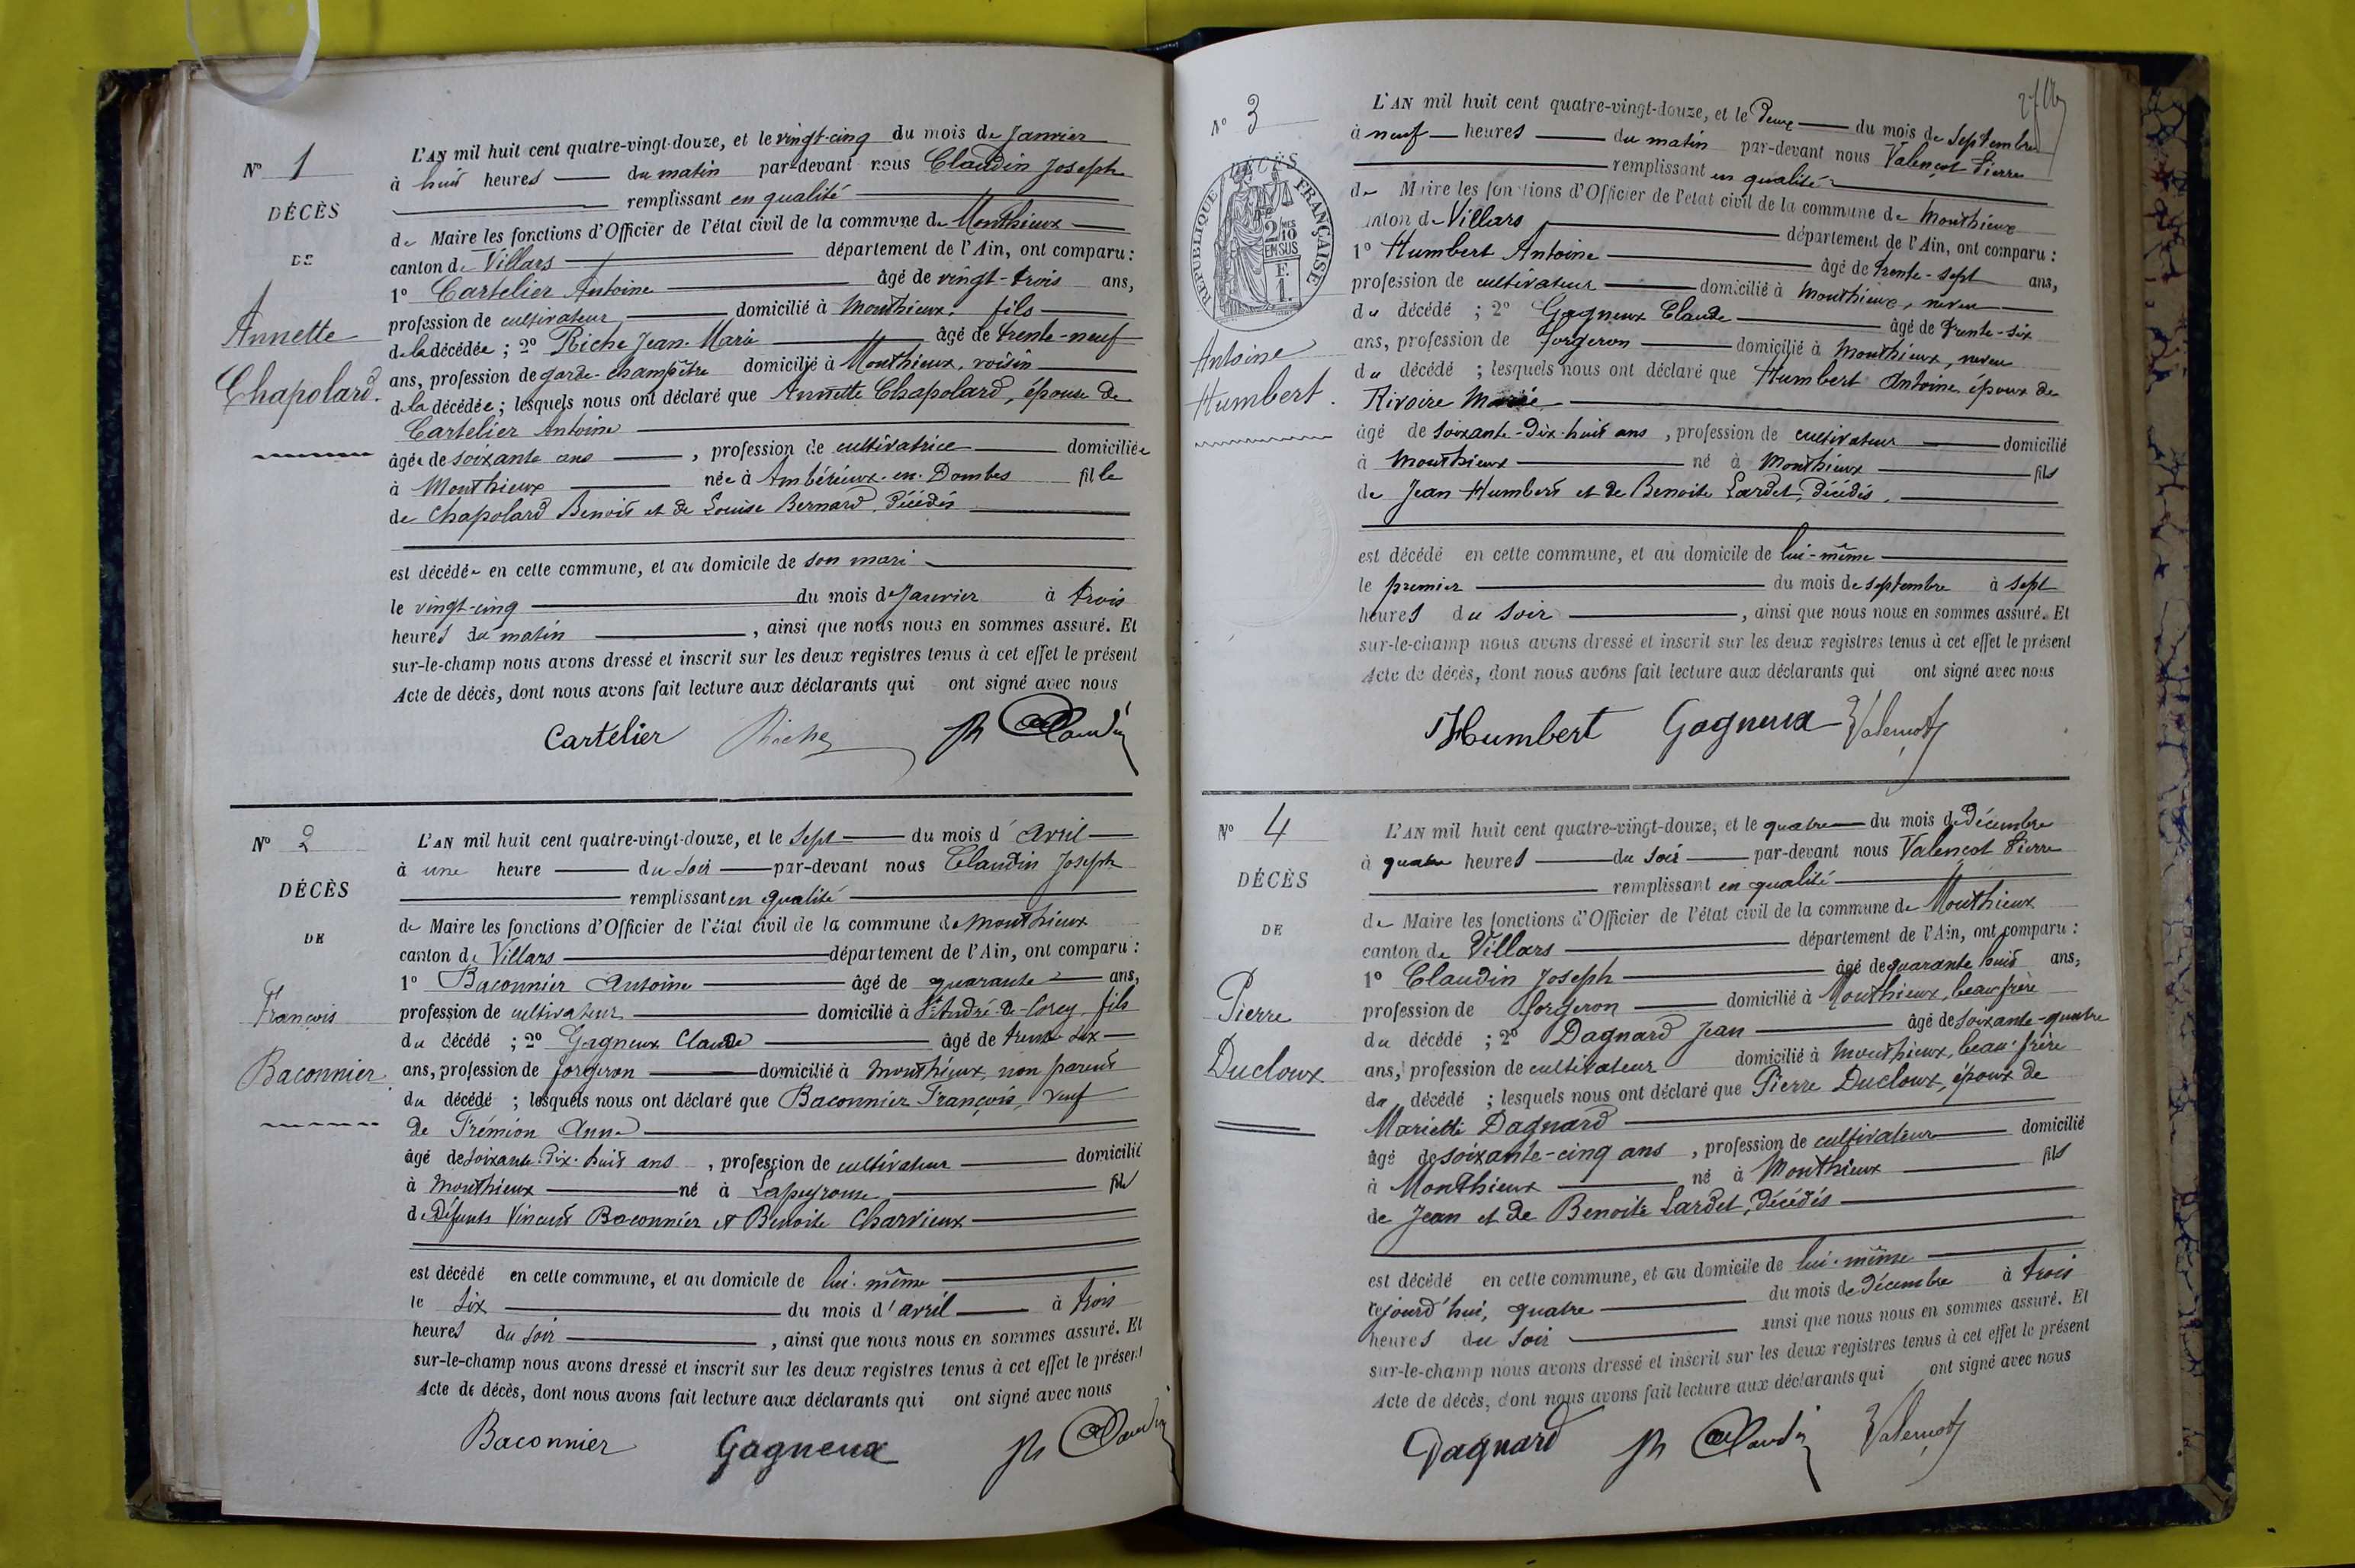 N° 1
DÉCÈS
DE
Annette
Chapolard.
L'AN mil huit cent quatre-vingt-douze, et le vingt-cinq du mois de Janvier
à huit heures du matin par-devant nous Claudin Joseph
remplissant en qualité
de Maire les fonctions d'Officier de l'état civil de la commune de Monthieux
canton de Villars département de l'Ain, ont comparu :
1° Cartelier Antoine âgé de vingt-trois ans,
profession de cultivateur domicilié à Monthieux, fils
de la décédée ; 2° Riche Jean-Marie âgé de trente-neuf
ans, profession de garde-champêtre domicilié à Monthieux, voisin
de la décédée ; lesquels nous ont déclaré que Annette Chapolard, épouse de
Cartelier Antoine
âgée de soixante ans , profession de cultivatrice domiciliée
à Monthieux née à Ambérieux-en-Dombes fille
de Chapolard Benoit et de Louise Bernard, décédés
est décédée en cette commune, et au domicile de son mari
le vingt-cinq du mois de Janvier à trois
heures du matin , ainsi que nous nous en sommes assuré. Et
sur-le-champ nous avons dressé et inscrit sur les deux registres tenus à cet effet le présent
Acte de décès, dont nous avons fait lecture aux déclarants qui ont signé avec nous
Cartelier Riche Jh Claudin
N° 2
DÉCÈS
DE
François
Baconnier
L'AN mil huit cent quatre-vingt-douze, et le sept du mois d'avril
à une heure du soir par-devant nous Claudin Joseph
remplissant en qualité
de Maire les fonctions d'Officier de l'état civil de la commune de Monthieux
canton de Villars département de l'Ain, ont comparu :
1° Baconnier Antoine âgé de quarante ans,
profession de cultivateur domicilié à St André-de-Corcy, fils
du décédé ; 2° Gagneux Claude âgé de trente six
ans, profession de forgeron domicilié à Monthieux, non parent
du décédé ; lesquels nous ont déclaré que Baconnier François, veuf
de Trémion Anne
âgé de soixante-dix-huit ans , profession de cultivateur domicilié
à Monthieux né à Lapeyrouse fils
de défunts Vincent Baconnier et Benoite Charvieux
est décédé en cette commune, et au domicile de lui-même
le six du mois d'avril à trois
heures du soir , ainsi que nous nous en sommes assuré. Et
sur-le-champ nous avons dressé et inscrit sur les deux registres tenus à cet effet le présent
Acte de décès, dont nous avons fait lecture aux déclarants qui ont signé avec nous
Baconnier Gagneux Jh Claudin
N° 3
DÉCÈS
RÉPUBLIQUE FRANÇAISE
2/10 EN SUS
F.
1.
Antoine
Humbert.
L'AN mil huit cent quatre-vingt-douze, et le Deux du mois de Septembre
à neuf heures du matin par-devant nous Valençot Pierre
remplissant en qualité
de Maire les fonctions d'Officier de l'état civil de la commune de Monthieux
canton de Villars département de l'Ain, ont comparu :
1° Humbert Antoine âgé de trente-sept ans,
profession de cultivateur domicilié à Monthieux, neveu
du décédé ; 2° Gagneux Claude âgé de trente-six
ans, profession de forgeron domicilié à Monthieux, neveu
du décédé ; lesquels nous ont déclaré que Humbert Antoine, époux de
Rivoire Marie
âgé de soixante-dix-huit ans , profession de cultivateur domicilié
à Monthieux né à Monthieux fils
de Jean Humbert et de Benoite Lardet, décédés.
est décédé en cette commune, et au domicile de lui-même
le premier du mois de septembre à sept
heures du soir , ainsi que nous nous en sommes assuré. Et
sur-le-champ nous avons dressé et inscrit sur les deux registres tenus à cet effet le présent
Acte de décès, dont nous avons fait lecture aux déclarants qui ont signé avec nous
Humbert Gagneux Valençot
N° 4
DÉCÈS
DE
Pierre
Ducloux
L'AN mil huit cent quatre-vingt-douze, et le quatre du mois de décembre
à quatre heures du soir par-devant nous Valençot Pierre
remplissant en qualité
de Maire les fonctions d'Officier de l'état civil de la commune de Monthieux
canton de Villars département de l'Ain, ont comparu :
1° Claudin Joseph âgé de quarante huit ans,
profession de forgeron domicilié à Monthieux, beau frère
du décédé ; 2° Dagnard Jean âgé de soixante-quatre
ans, profession de cultivateur domicilié à Monthieux, beau-frère
du décédé ; lesquels nous ont déclaré que Pierre Ducloux, époux de
Mariette Dagnard
âgé de soixante-cinq ans , profession de cultivateur domicilié
à Monthieux né à Monthieux fils
de Jean et de Benoite Lardet, décédés
est décédé en cette commune, et au domicile de lui-même
cejourd'hui, quatre du mois de décembre à trois
heures du soir ainsi que nous nous en sommes assuré. Et
sur-le-champ nous avons dressé et inscrit sur les deux registres tenus à cet effet le présent
Acte de décès, dont nous avons fait lecture aux déclarants qui ont signé avec nous
Dagnard Jh Claudin Valençot